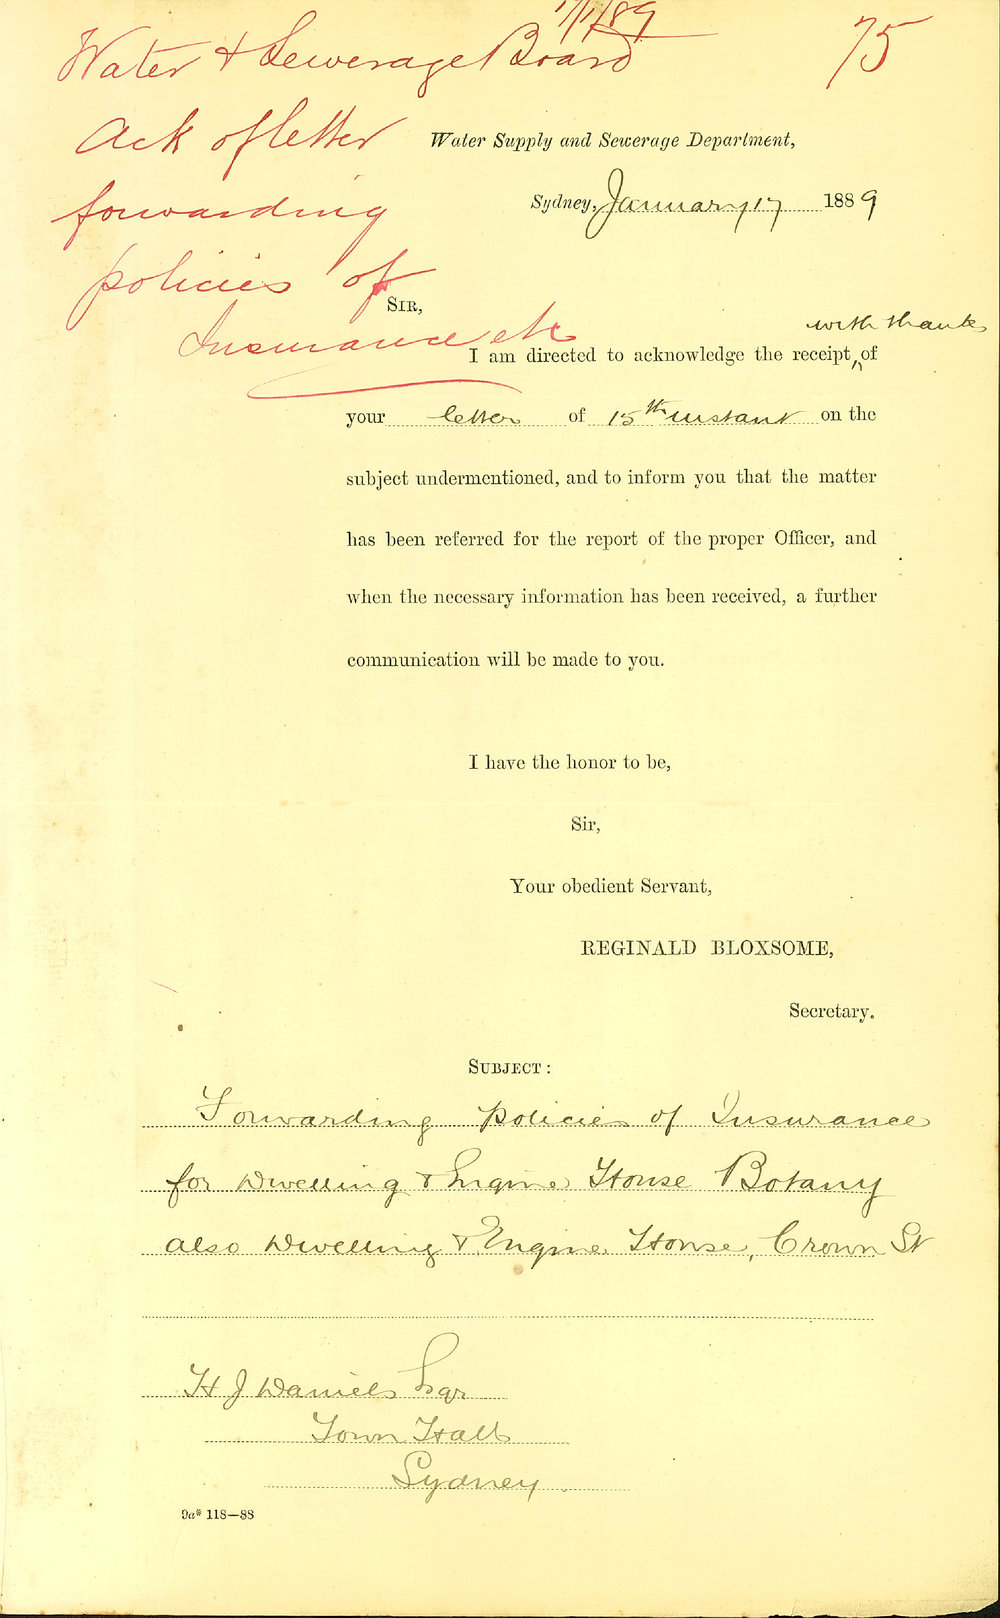 17/1/89
75
Water & Sewerage Board
Ack of letter
forwarding
policies of
Insurance etc
Water Supply and Sewerage Department,
Sydney, January 17 1889
SIR,
with thanks
I am directed to acknowledge the receipt ^ of
your letter of 15th instant on the
subject undermentioned, and to inform you that the matter
has been referred for the report of the proper Officer, and
when the necessary information has been received, a further
communication will be made to you.
I have the honor to be,
Sir,
Your obedient Servant,
REGINALD BLOXSOME,
Secretary.
SUBJECT:
Forwarding policies of Insurance
for Dwelling & Engine House Botany
also Dwelling & Engine House, Crown St
H J Daniels Esqr
Town Hall
Sydney
9a* 118—88